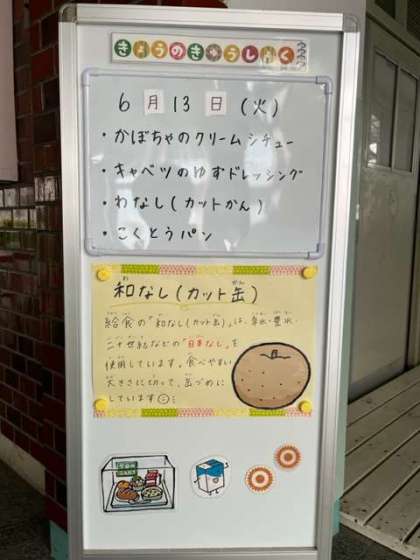 きょうのきゅうしょく
6月13日(火)
・かぼちゃのクリームシチュー
・キャベツのゆずドレッシング
・わなし(カットかん)
・こくとうパン
和なし(カット缶)
給食の「和なし(カット缶)」は、幸水・豊水・
二十世紀などの「日本なし」を
使用しています。食べやすい
大きさに切って、缶づめに
しています